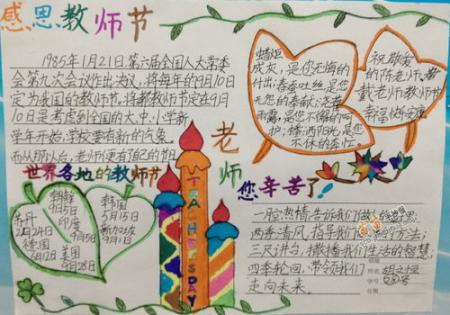 感恩教师节
1985年1月21日,第六届全国人大常委
会第九次会议作出决议,将每年的9月10日
定为我国的教师节。将教师节定在9月
10日是考虑到全国的大、中、小学新
学年开始,学校要有新的气象。
而从那以后,老师便有了自己的节日
蜡炬
成灰,是您无悔的
付出;春蚕吐丝,是您
无怨的奉献;浓春
雨露,是您不倦的呵
护;缘洒阳光,是您
不休的牵忙。
祝敬爱
的陈老师、
戴老师教师节
幸福快乐
世界各地的教师节
朝鲜
9月5日
苏丹
2月24日
印度
9月5日
德国
6月12日
美国
9月28日
韩国
5月15日
新加坡
9月1日
TEACHER'S DAY
老师
您辛苦了!
一腔热情,告诉我们做
两季清风,指导我们
三尺讲台,撒播我们生活的智慧;
四季轮回,带领我们
走向未来。